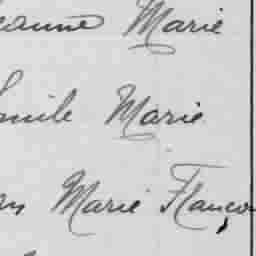 eanne Marie
mile Marie
Marie Francoi